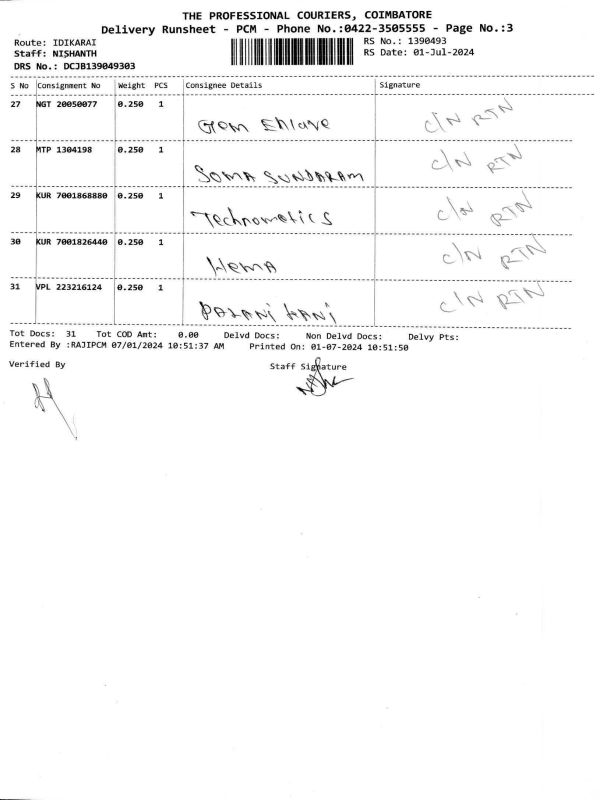 THE PROFESSIONAL COURIERS, COIMBATORE
Delivery Runsheet - PCM - Phone No.:0422-3505555 - Page No.:3
Route: IDIKARAI
RS No.: 1390493
Staff: NISHANTH
RS Date: 01-Jul-2024
DRS No.: DCJB139049303
S No Consignment No Weight PCS Consignee Details Signature
27 NGT 20050077 0.250 1
Gem Enlave C/N RTN
28 MTP 1304198 0.250 1
SOMA SUNDARAM C/N RTN
29 KUR 7001868880 0.250 1
Technometics C/N RTN
30 KUR 7001826440 0.250 1
HemA C/N RTN
31 VPL 223216124 0.250 1
PALANi MANi C/N RTN
Tot Docs: 31 Tot COD Amt: 0.00 Delvd Docs: Non Delvd Docs: Delvy Pts:
Entered By :RAJIPCM 07/01/2024 10:51:37 AM Printed On: 01-07-2024 10:51:50
Verified By Staff Signature